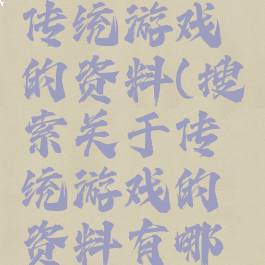 传统游戏
的资料(搜
索关于传
统游戏的
资料有哪